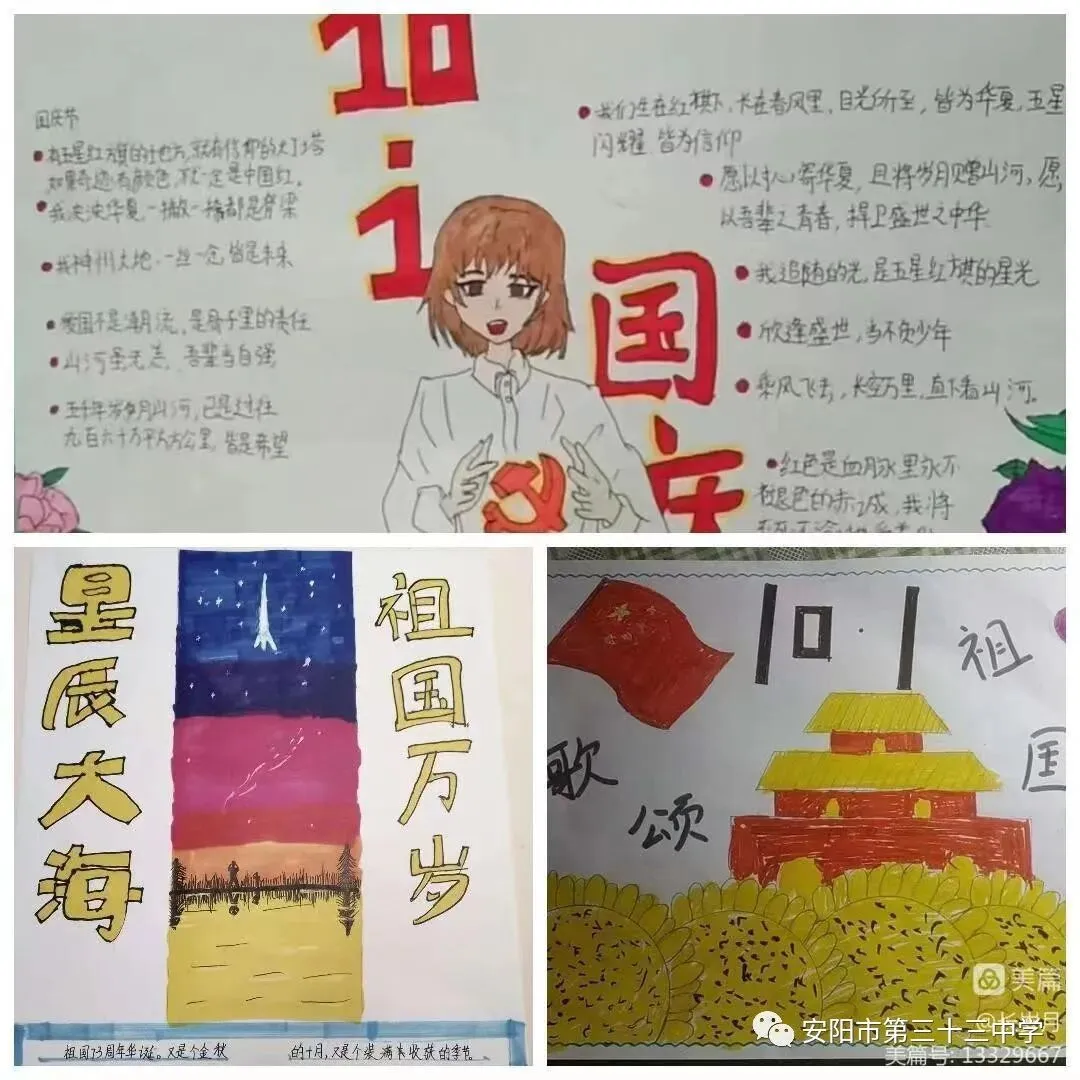 10·1
国庆
国庆节
有五星红旗的地方,就有信仰的灯塔
如果奇迹有颜色,不一定是中国红。
我泱泱华夏,一撇一捺都是脊梁
我神州大地,一丝一念,皆是未来
爱国不是潮流,是骨子里的责任
山河虽无恙,吾辈当自强
五千年岁月山河,已是过往
九百六十万平方公里,皆是希望
我们生在红旗下,长在春风里,目光所至,皆为华夏,五星
闪耀 皆为信仰
愿以寸心寄华夏,且将岁月赠山河,愿
以吾辈之青春,捍卫盛世之中华
我追随的光,是五星红旗的星光
欣逢盛世,当不负少年
乘风飞去,长空万里,直下看山河。
红色是血脉里永不
褪色的赤诚,我将
星辰大海
祖国万岁
祖国73周年华诞。又是个金秋 的十月,又是个装满 收获的季节。
10·1
歌颂
祖国
美篇
安阳市第三十三中学
美篇号: 13329667